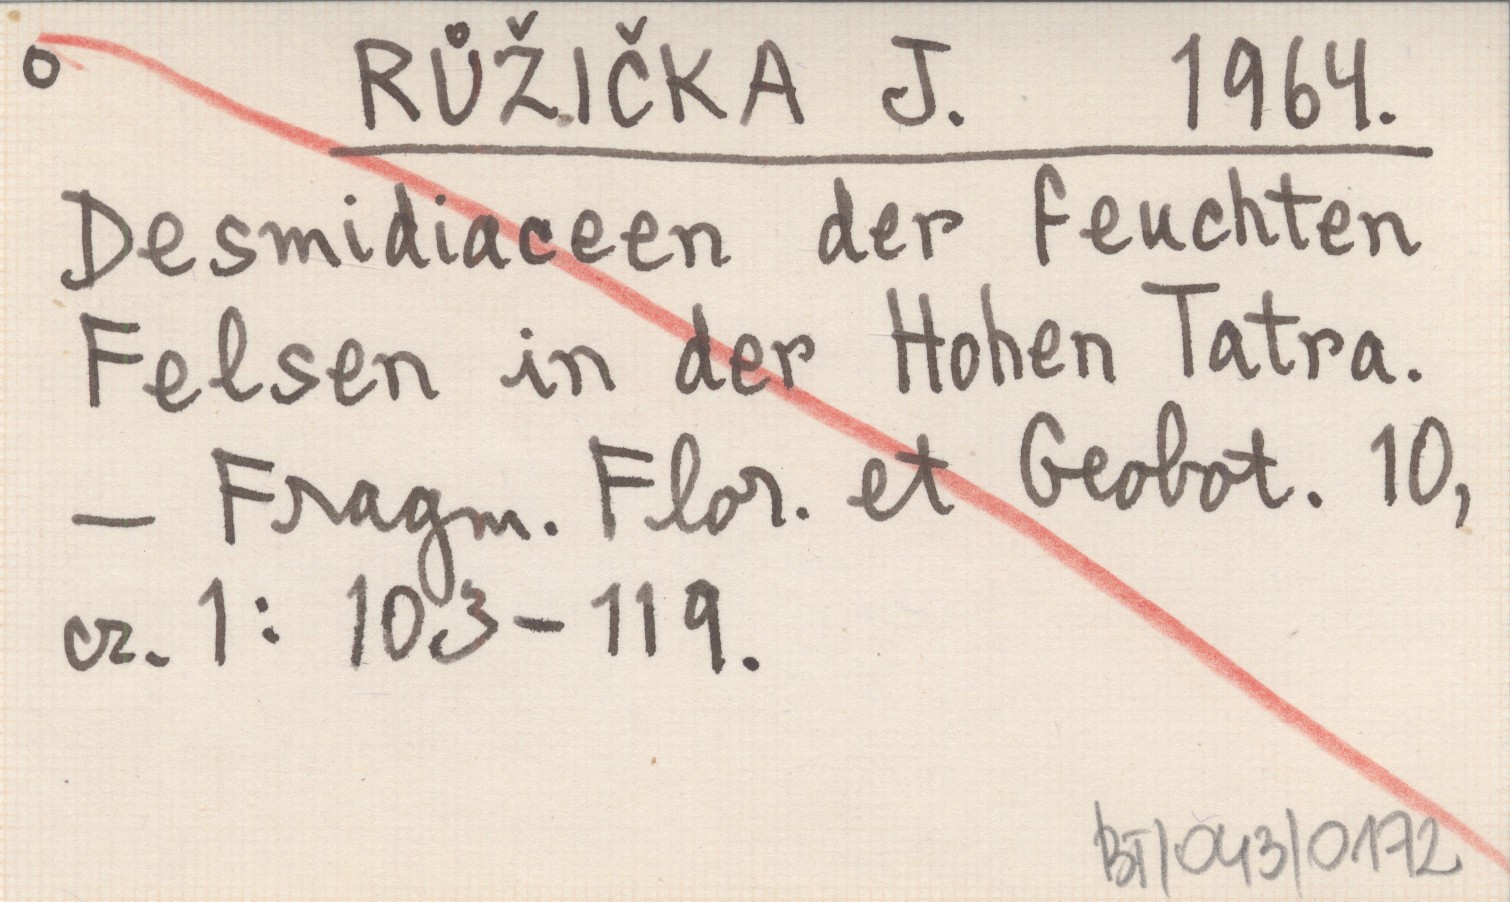 o RŮŽIČKA J. 1964.
Desmidiaceen der feuchten
Felsen in der Hohen Tatra.
— Fragm. Flor. et Geobot. 10,
cz. 1: 103-119.
BT/043/0172